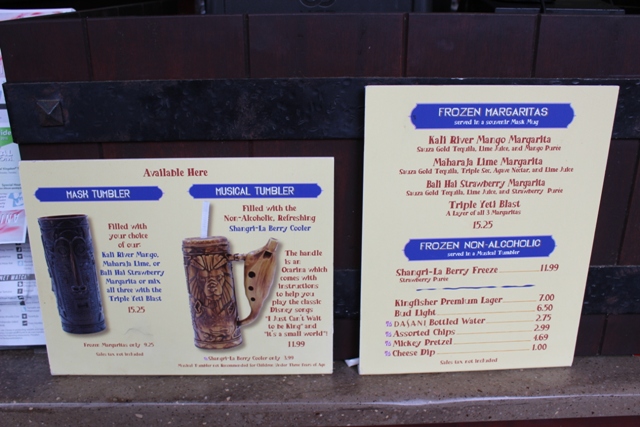 Available Here
MASK TUMBLER
Filled with
your choice
of our:
Kali River Mango,
Maharaja Lime, or
Bali Hai Strawberry
Margarita or mix
all three with the
Triple Yeti Blast
15.25
Frozen Margaritas only 9.25
Sales tax not included
MUSICAL TUMBLER
Filled with the
Non-Alcoholic, Refreshing
Shangri-La Berry Cooler
The handle
is an
Ocarina which
comes with
instructions
to help you
play the classic
Disney songs
"I Just Can't Wait
to be King" and
"It's a small world"!
11.99
Shangri-La Berry Cooler only 5.99
Musical Tumbler not Recommended for Children Under Three Years of Age
FROZEN MARGARITAS
served in a souvenir Mask Mug
Kali River Mango Margarita
Sauza Gold Tequila, Lime Juice, and Mango Puree
Maharaja Lime Margarita
Sauza Gold Tequila, Triple Sec, Agave Nectar, and Lime Juice
Bali Hai Strawberry Margarita
Sauza Gold Tequila, Lime Juice, and Strawberry Puree
Triple Yeti Blast
A layer of all 3 Margaritas
15.25
FROZEN NON-ALCOHOLIC
served in a Musical Tumbler
Shangri-La Berry Freeze 11.99
Strawberry Puree
Kingfisher Premium Lager 7.00
Bud Light 6.50
DASANI Bottled Water 2.75
Assorted Chips 2.99
Mickey Pretzel 4.69
Cheese Dip 1.00
Sales tax not included